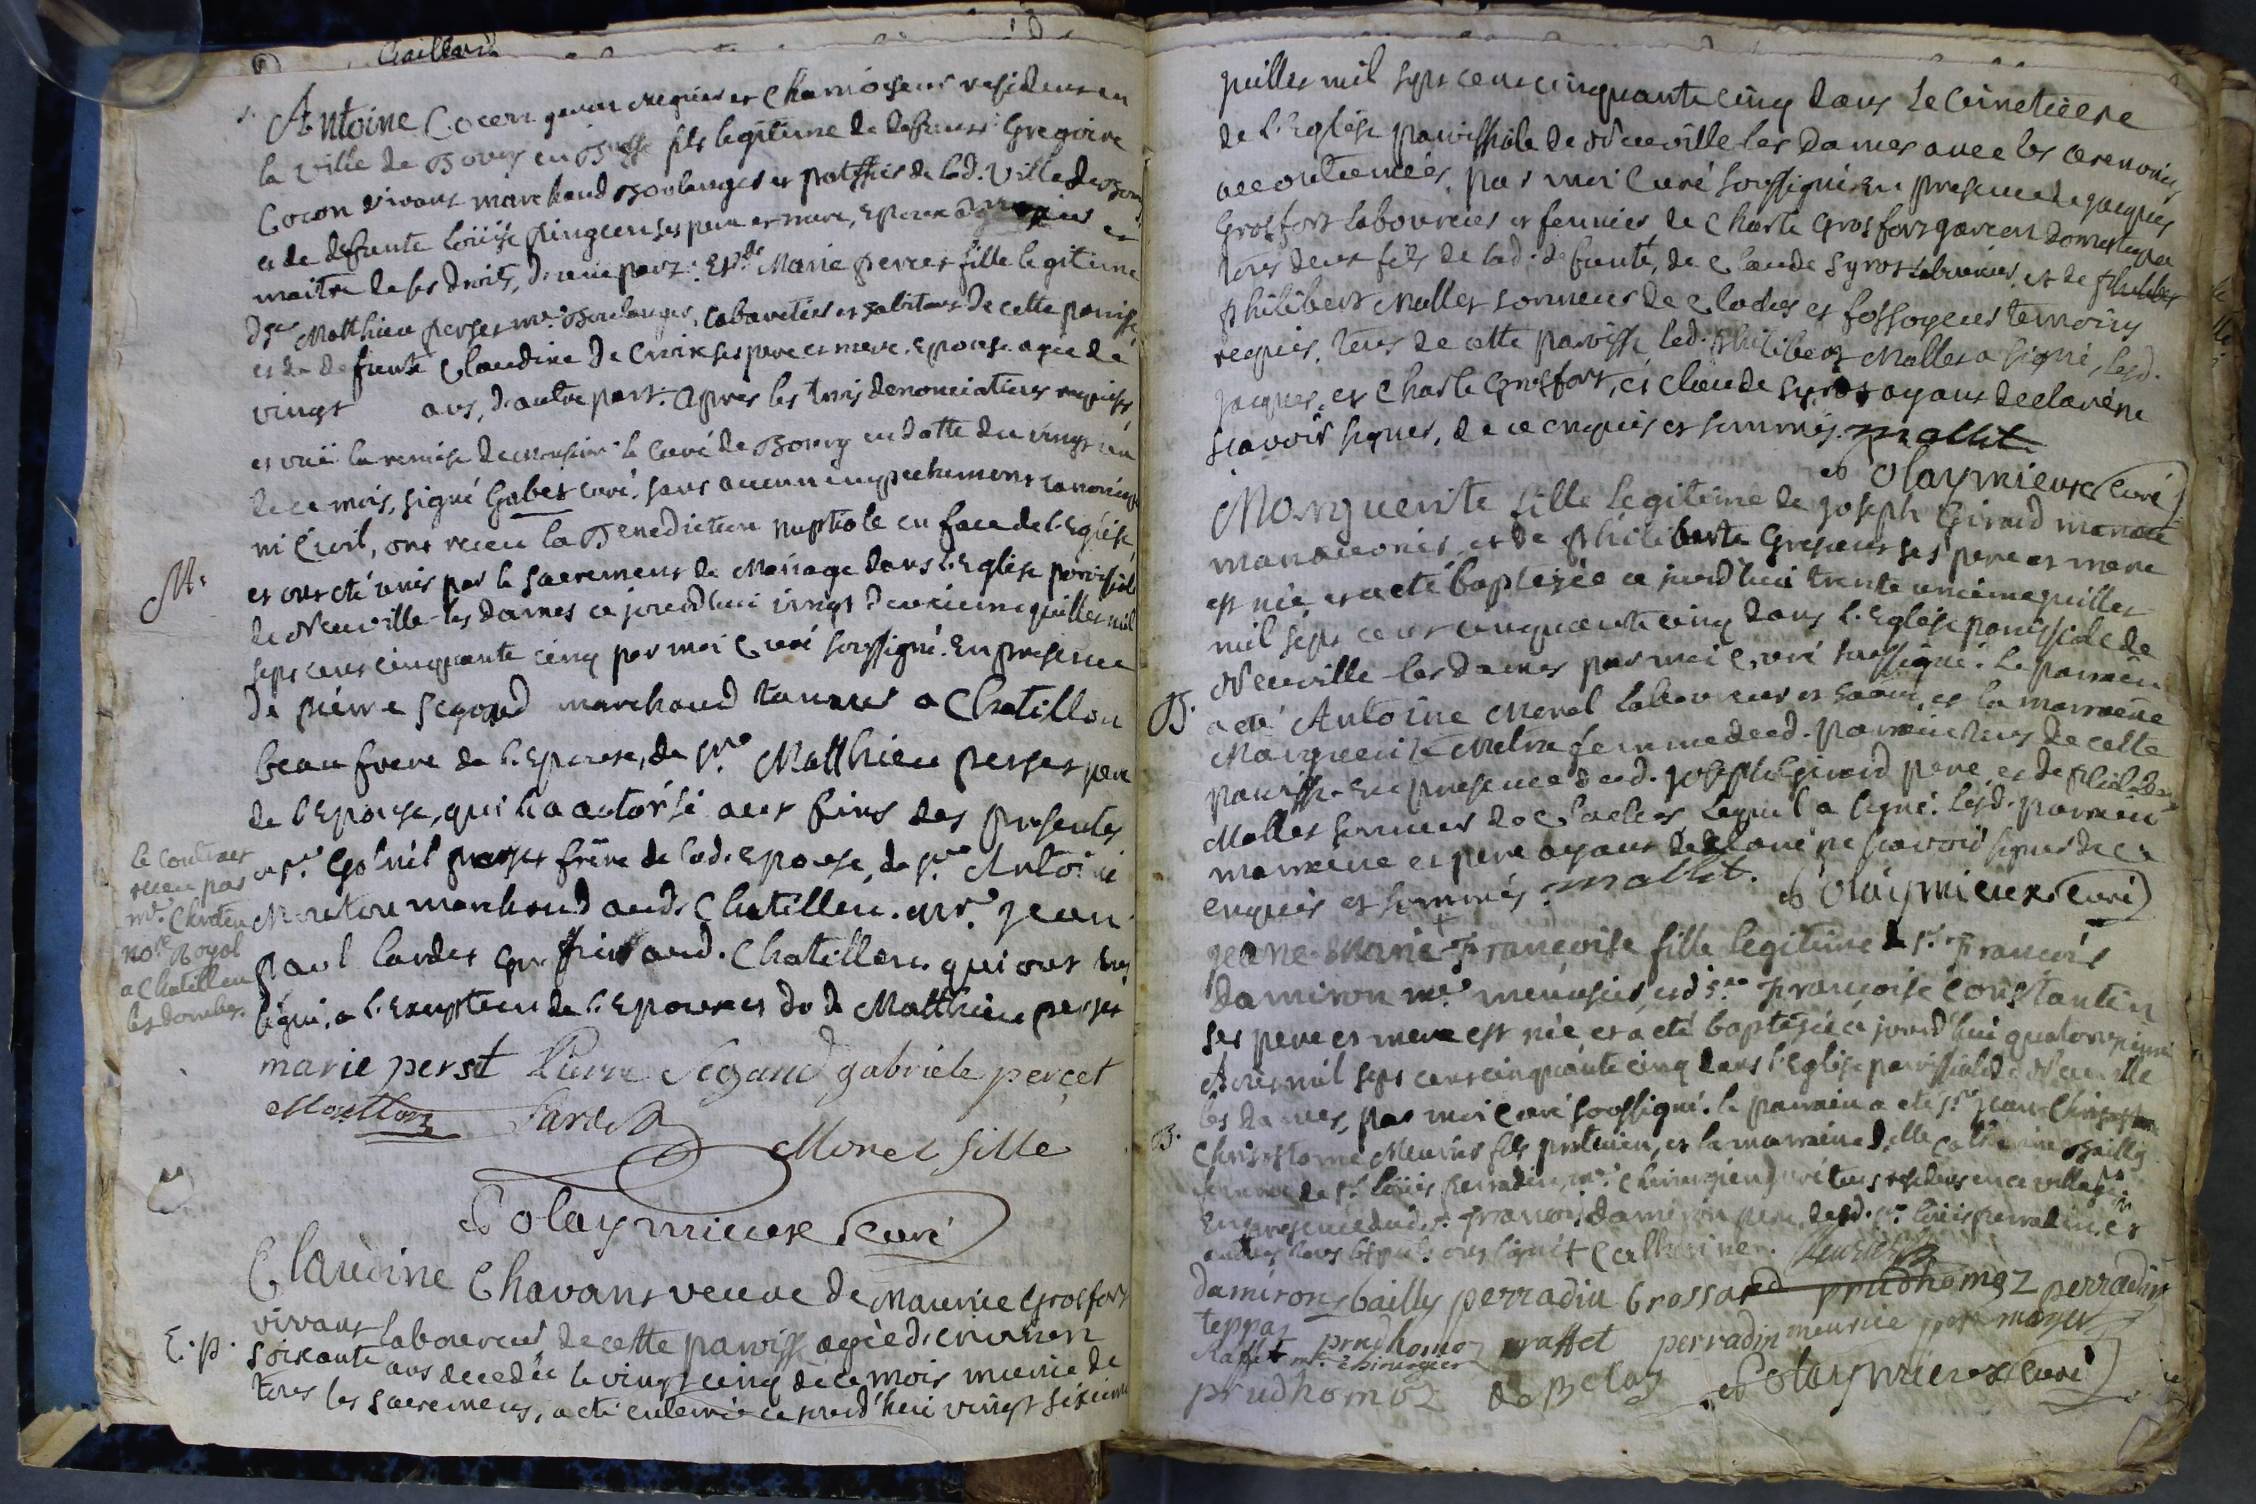 Gaillard
Antoine Cocon gantier et Chamoiseur residant en
la ville de Bourg en Bresse fils legitime de defunt Gregoire
Cocon vivant marchand Boulanger et patissier de lad. ville de Bourg
et de defunte Loüise ses pere et mere, Epoux et
maitre de ses droits, d'une part: Et Marie perret fille legitime
de Matthieu perset Boulanger, cabaretier et habitant de cette paroisse
et de defunte Claudine de Croix ses pere et mere. Epouse agée de
vingt ans, d'autre part. apres les trois denonciations requises,
et vüe la remise de Monsieur le Curé de Bourg en datte du vingt un
de ce mois, signé Gabet curé. sans aucun empechement canonique
ni Civil, ont receu la Benediction nuptiale en face de l'Eglise,
M.
et ont eté unis par le sacrement de Mariage dans l'Eglise paroissiale
de Neuville-les dames ce jourd'hui vingt deuxieme juillet mil
sept cent cinquante cinq par moi Curé soussigné. En presence
de pierre segond marchand tanneur a Chatillon
beaufrere de l'Epouse, de sr. Matthieu perset pere
de l'Epouse, qui l'a autorisé aux fins des presentes
et sr. Gabriel perset frere de lad. Epouse, de sr. Antoine
Mouton marchand aud. Chatillon. Mr. jean
paul lardet aud. Chatillon qui ont
signé, a l'Exception de l'Epoux et dud. Matthieu perset
le contract
receu par
mr. Chrétien
nore. Royal
a Chatillon
les dombes.
marie perset Pierre Segand gabriele perçet
Moutton Lardet
Morel fille
Polaymieux Curé
Claudine Chavant veuve de Maurice Grosfort
vivant laboureur de cette paroisse agée d'environ
E.p.
soixante ans decedée le vingt cinq de ce mois munie de
tous les sacremens, a eté enterrée ce jourd'hui vingt sixieme
juillet mil sept cent cinquante cinq dans le Cimetiere
de l'Eglise paroissiale de Neuville les Dames avec les ceremonies
accoutumées, par moi Curé soussigné. En presence de jacques
Grosfort laboureur et fermier, de Charle Grosfort garcon domestique
tous deux fils de lad. defunte, de Claude Syrot laboureur, et de
philibert Mallet sonneur de cloches et fossoyeur temoins
requis, tous de cette paroisse led. philibert Mallet a signé, lesd.
jacques, et Charle Grosfort, et claude Syrot ayant declaré ne
scavoir signer, de ce enquis et sommés. mallet
Polaymieux Curé
Marguerite fille legitime de joseph Girard
et de philiberte ses pere et mere
est née et a eté baptisée ce jourd'hui trente unieme juillet
mil sept cent cinquante cinq dans l'Eglise paroissiale de
Neuville-les dames par moi Curé soussigné. le parrain
B.
a eté Antoine Morel laboureur et la marraine
Marguerite femme dud. parrain tous de cette
paroisse. En presence dud. joseph Girard pere, et de philibert
Mallet sonneur de cloches lequel a signé. lesd. parrain
marraine et pere ayant declaré ne scavoir signer de ce
enquis et sommés. mallet.
Polaymieux Curé
jeane-Marie-Françoise fille legitime de sr. François
Damiron me. menuisier, et de Françoise Constantin
ses pere et mere est née et a eté baptisée ce jourd'hui quatorzieme
mil sept cent cinquante cinq dans l'Eglise paroissiale de Neuville
les dames, par moi Curé soussigné. le parrain a eté sr. jean
B.
Chrisostome Meurier fils praticien, et la marraine delle Catherine Bailly
femme de sr. Loüis perradin, me. Chirurgien juré tous residens en ce village
En presence dud. sr. François damiron pere, dud. sr. loüis perradin, et
autres tous lesquels ont signé + Catherine.
damiron bailly perradin Brossard prudhomoz perradin
teppaz prudhomoz raffet perradin meurier
Raffet me. chirurgien
prudhomoz Polaymieux Curé